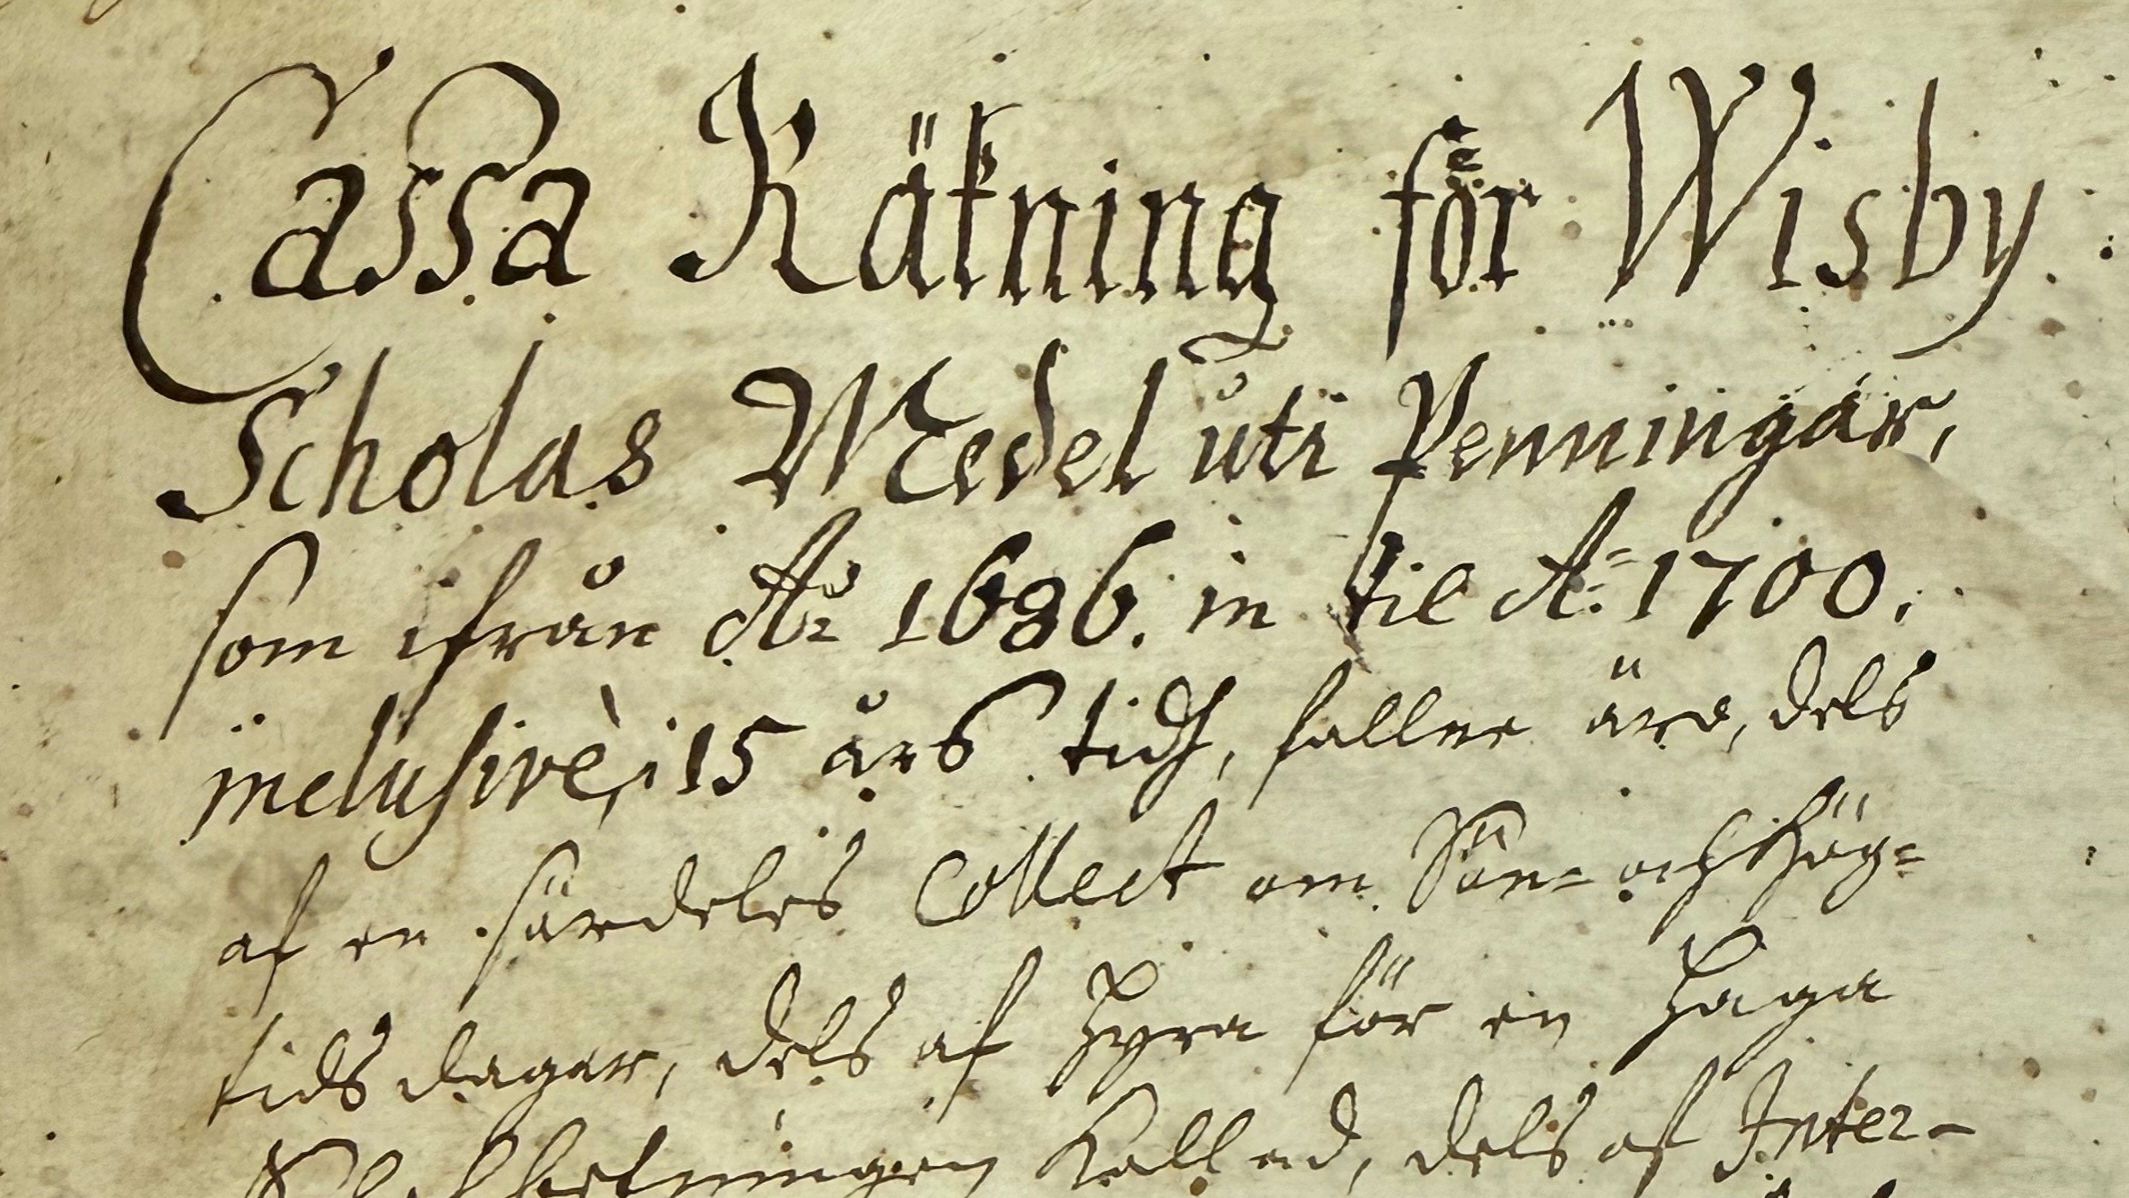 Cassa Räkning för Wisby
Scholas Medel uti Penningar,
som ifrån A:o 1686. in til A:o 1700.
inclusivè, i 15 åhrs tidh, fallne äre, dels
af en särdeles Collect om Sön= och Hög=
tids dagar, dels af Hyra för en Haga
Kallad, dels af Inter-